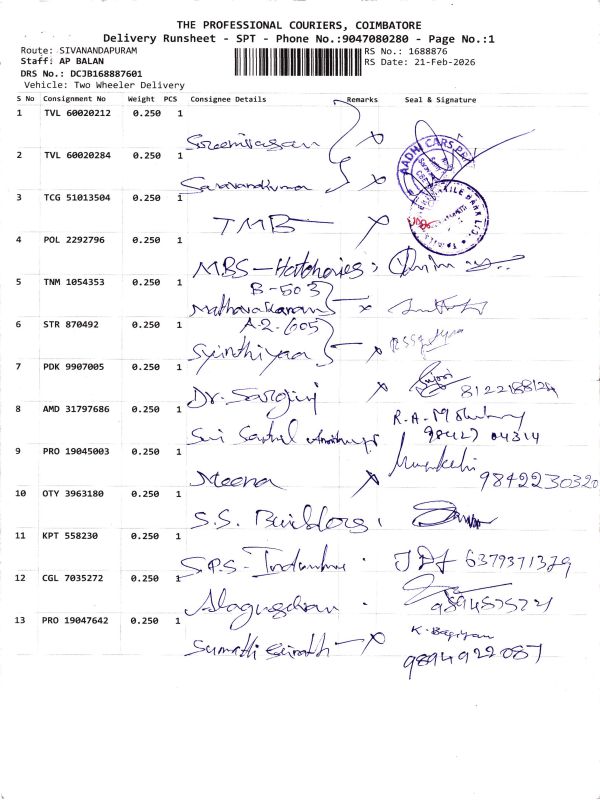 THE PROFESSIONAL COURIERS, COIMBATORE
Delivery Runsheet - SPT - Phone No.:9047080280 - Page No.:1
Route: SIVANANDAPURAM
RS No.: 1688876
Staff: AP BALAN
RS Date: 21-Feb-2026
DRS No.: DCJB168887601
Vehicle: Two Wheeler Delivery
S No Consignment No Weight PCS Consignee Details Remarks Seal & Signature
1 TVL 60020212 0.250 1
Sreenivasan
AADHI CARS
2 TVL 60020284 0.250 1
Saravanakumar
3 TCG 51013504 0.250 1
TMB
4 POL 2292796 0.250 1
MBS - Hatcheries
5 TNM 1054353 0.250 1
B-503
6 STR 870492 0.250 1
A2-605
7 PDK 9907005 0.250 1
Dr. Sargini
8 AMD 31797686 0.250 1
R.A.M
98427 04314
9 PRO 19045003 0.250 1
Meena
9842230320
10 OTY 3963180 0.250 1
S.S. Builders
11 KPT 558230 0.250 1
S.P.S-
6379371379
12 CGL 7035272 0.250 1
13 PRO 19047642 0.250 1
Sumathi
9894922087